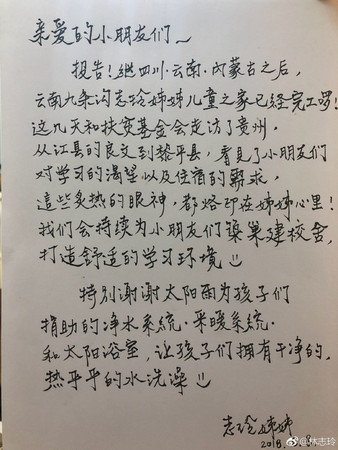 亲爱的小朋友们~
报告！继四川·云南·内蒙古之后，
云南九条沟志玲姊姊儿童之家已经完工啰！
这几天和扶贫基金会走访了贵州，
从江县的良文到黎平县，看見了小朋友们
对学习的渴望以及住宿的需求，
這些炙热的眼神，都烙印在姊姊心里！
我们会持续为小朋友们筑巢建校舍，
打造舒适的学习环境
特别谢谢太阳雨为孩子们
捐助的净水系统·采暖系统·
和太阳浴室，让孩子们拥有干净的，
热乎乎的水洗澡
志玲姊姊
2018.
@林志玲